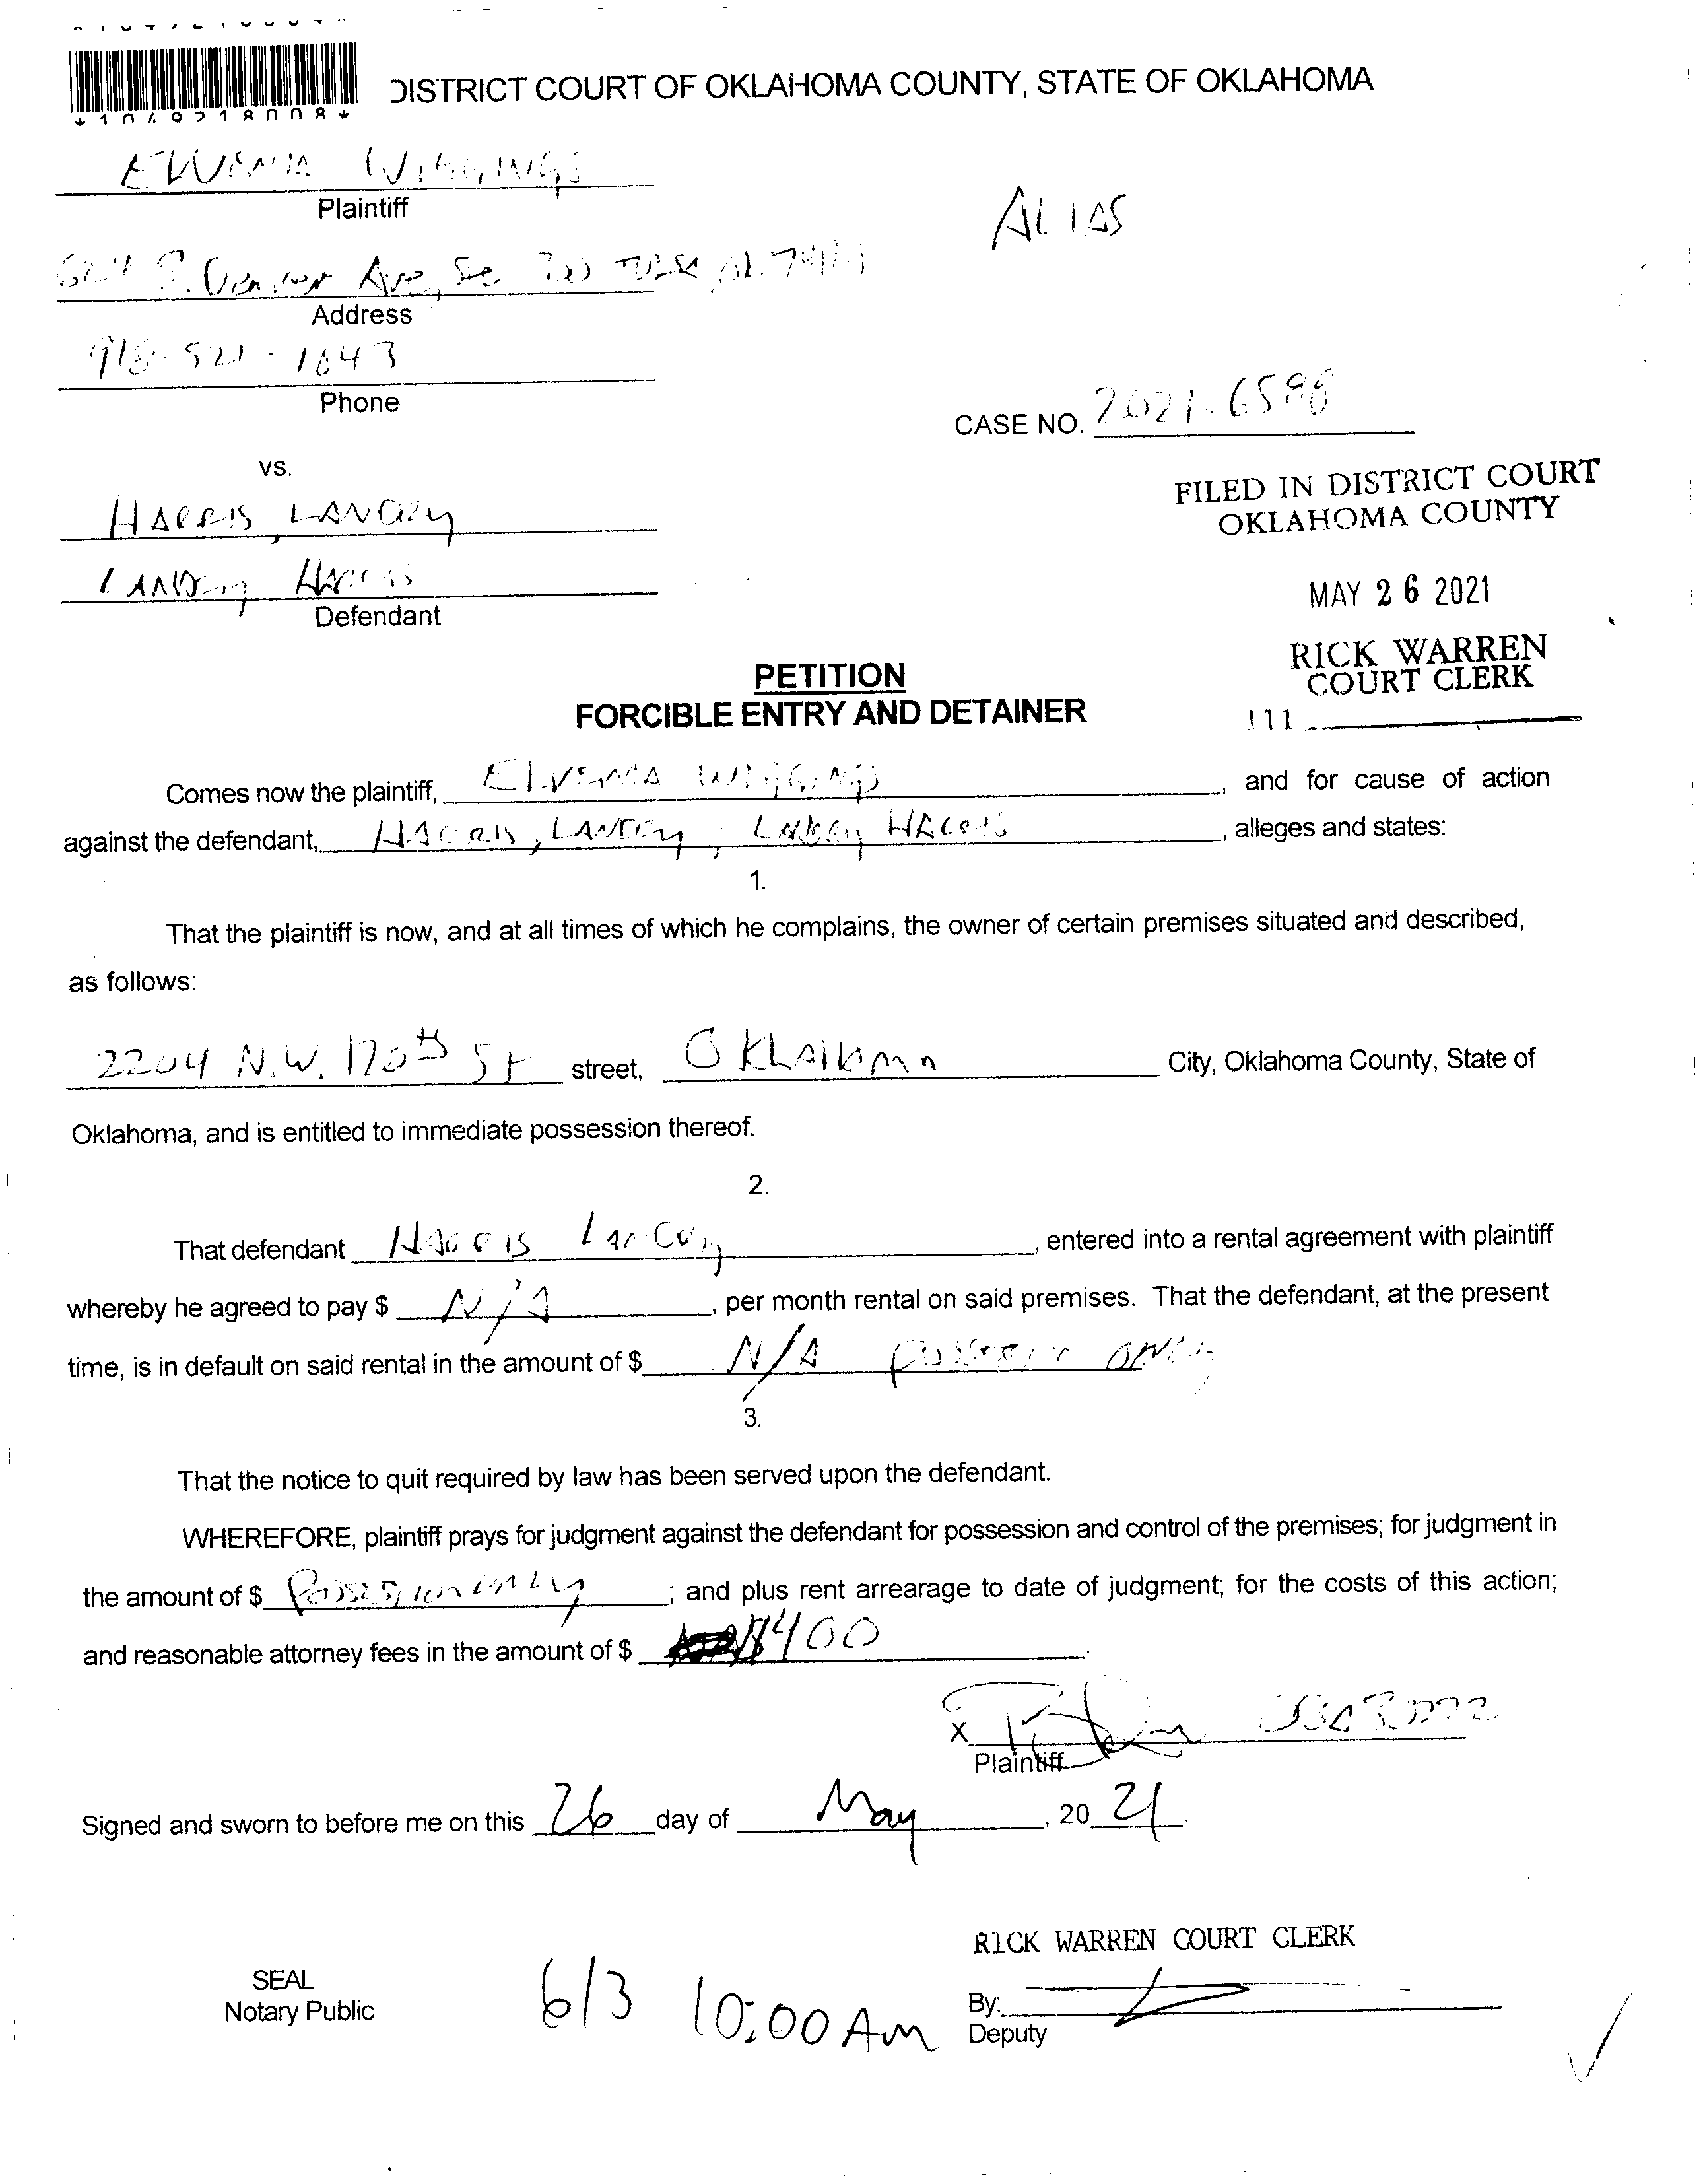 *1049218008*
DISTRICT COURT OF OKLAHOMA COUNTY, STATE OF OKLAHOMA
WIGGINGS
Plaintiff
ALIAS
624 S. Denver Ave, Ste 300 Tulsa OK 74119
Address
918-521-1843
Phone
CASE NO. 2021-6588
vs.
HARRIS, LANDRY
FILED IN DISTRICT COURT
OKLAHOMA COUNTY
LANDRY HARRIS
Defendant
MAY 26 2021
RICK WARREN
COURT CLERK
111
PETITION
FORCIBLE ENTRY AND DETAINER
Comes now the plaintiff, , and for cause of action
against the defendant, HARRIS, LANDRY; LANDRY HARRIS, alleges and states:
1.
That the plaintiff is now, and at all times of which he complains, the owner of certain premises situated and described,
as follows:
2204 N.W. 170th St street, OKLAHOMA City, Oklahoma County, State of
Oklahoma, and is entitled to immediate possession thereof.
2.
That defendant HARRIS LANDRY, entered into a rental agreement with plaintiff
whereby he agreed to pay $ N/A, per month rental on said premises. That the defendant, at the present
time, is in default on said rental in the amount of $ N/A ONLY
3.
That the notice to quit required by law has been served upon the defendant.
WHEREFORE, plaintiff prays for judgment against the defendant for possession and control of the premises; for judgment in
the amount of $ ; and plus rent arrearage to date of judgment; for the costs of this action;
and reasonable attorney fees in the amount of $ $400.
X
Plaintiff
Signed and sworn to before me on this 26 day of May, 20 21.
RICK WARREN COURT CLERK
SEAL
Notary Public
6/3 10:00 Am
By:
Deputy